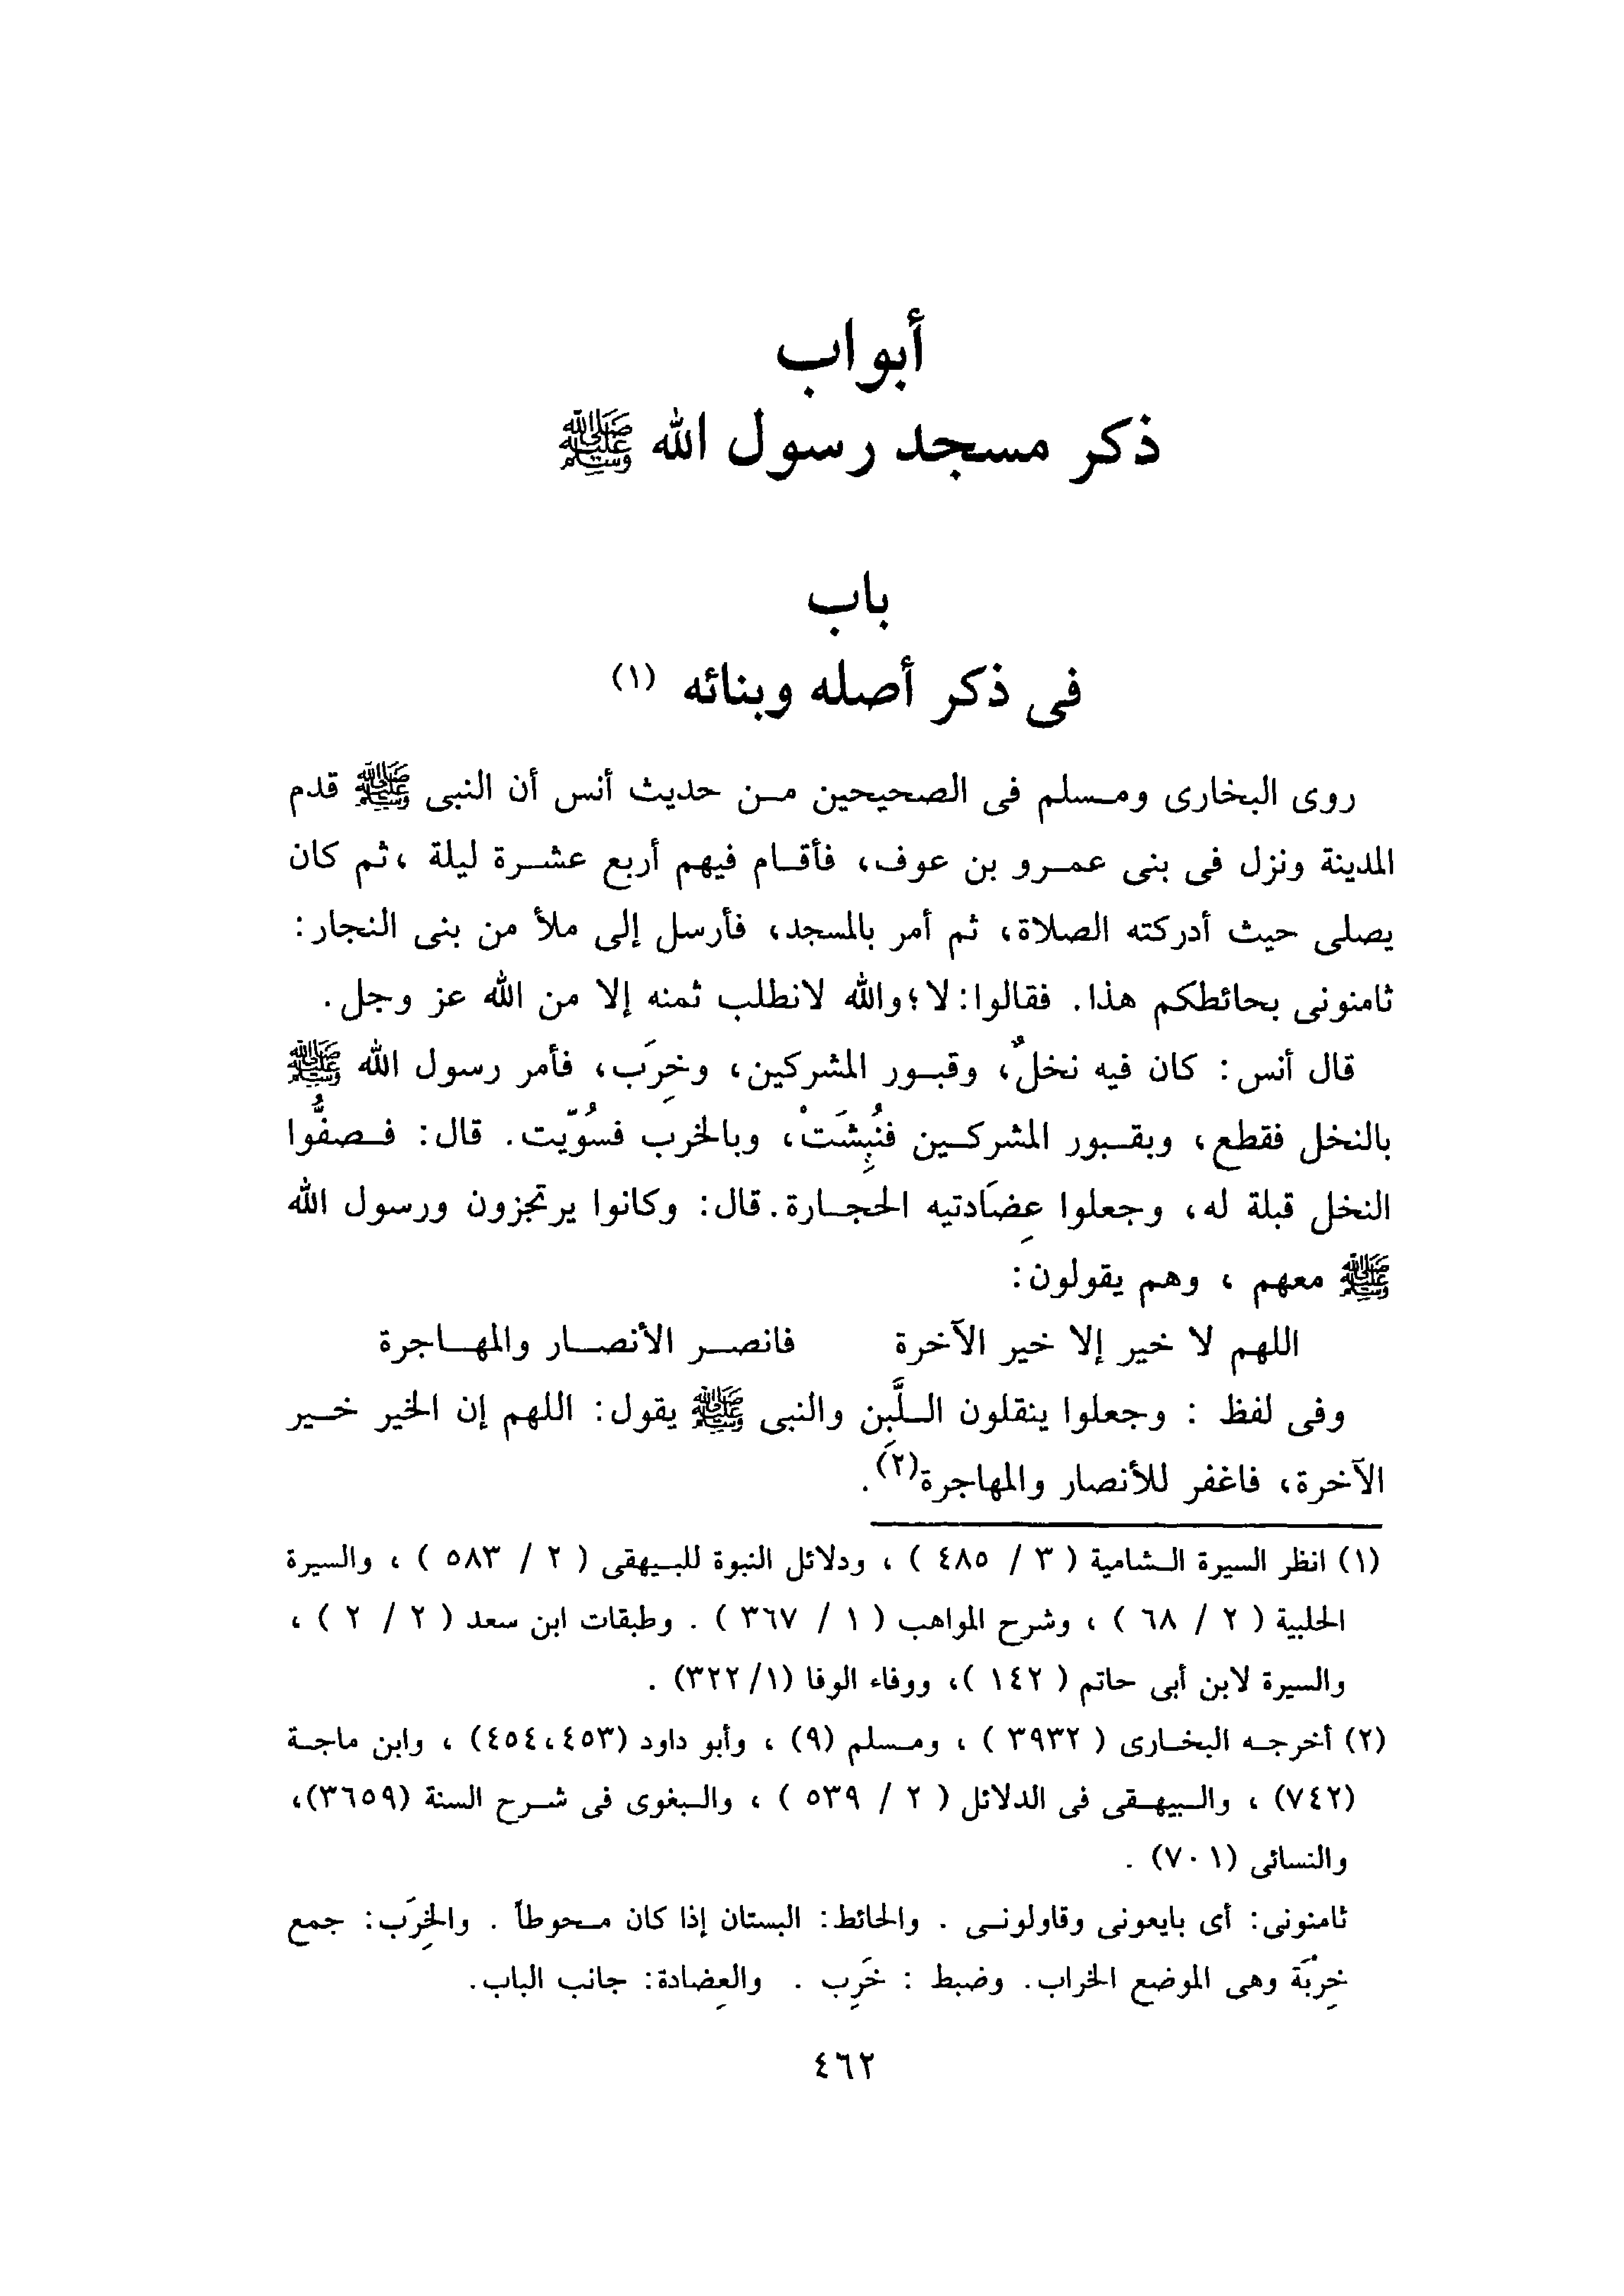 أبواب
ذكر مسجد رسول الله ﷺ
باب
فى ذكر أصله وبنائه (١)
روى البخارى ومسلم فى الصحيحين من حديث أنس أن النبى ﷺ قدم
المدينة ونزل فى بنى عمرو بن عوف، فأقام فيهم أربع عشرة ليلة ،ثم كان
يصلى حيث أدركته الصلاة، ثم أمر بالمسجد، فأرسل إلى ملأ من بنى النجار:
ثامنونى بحائطكم هذا. فقالوا: لا؛ والله لانطلب ثمنه إلا من الله عز وجل.
قال أنس: كان فيه نخلٌ، وقبور المشركين، وخرِبَ، فأمر رسول الله ﷺ
بالنخل فقطع، وبقبور المشركين فنُبِشَتْ، وبالخرب فسُوّيت. قال: فصفُّوا
النخل قبلة له، وجعلوا عِضَادتيه الحجارة. قال: وكانوا يرتجزون ورسول الله
ﷺ معهم ، وهم يقولون:
اللهم لا خير إلا خير الآخرة فانصر الأنصار والمهاجرة
وفى لفظ : وجعلوا ينقلون اللَّبِن والنبى ﷺ يقول: اللهم إن الخير خير
الآخرة، فاغفر للأنصار والمهاجرة(٢).
(١) انظر السيرة الشامية ( ٣ / ٤٨٥ ) ، ودلائل النبوة للبيهقى ( ٢ / ٥٨٣ ) ، والسيرة
الحلبية ( ٢ / ٦٨ ) ، وشرح المواهب ( ١ / ٣٦٧ ) . وطبقات ابن سعد ( ٢ / ٢ ) ،
والسيرة لابن أبى حاتم ( ١٤٢ )، ووفاء الوفا (١/ ٣٢٢) .
(٢) أخرجه البخارى ( ٣٩٣٢ ) ، ومسلم (٩) ، وأبو داود (٤٥٣،٤٥٤) ، وابن ماجة
(٧٤٢) ، والبيهقى فى الدلائل ( ٢ / ٥٣٩ ) ، والبغوى فى شرح السنة (٣٦٥٩)،
والنسائى (٧٠١) .
ثامنونى: أى بايعونى وقاولونى . والحائط: البستان إذا كان محوطاً . والخِرَب: جمع
خِرْبَة وهى الموضع الخراب. وضبط : خَرِب . والعِضادة: جانب الباب.
٤٦٢